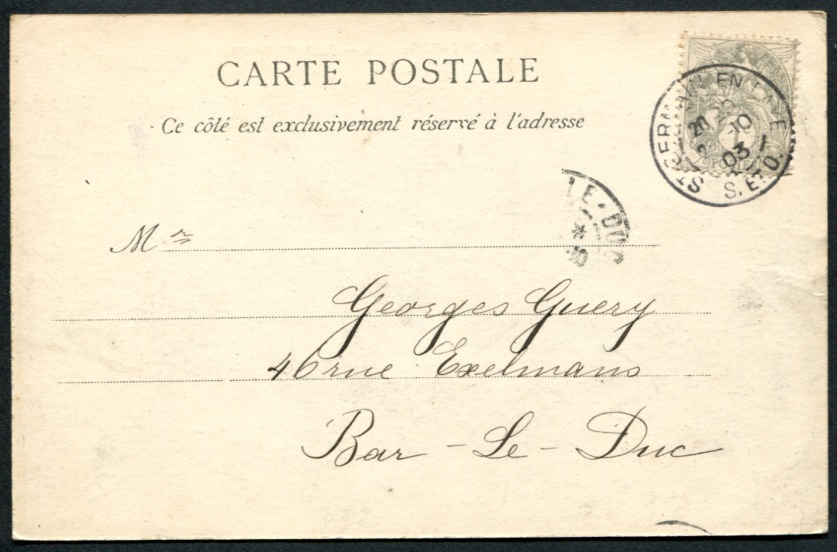 CARTE POSTALE
Ce côté est exclusivement réservé à l'adresse
ST GERMAIN EN LAYE
20
10
03
S. ET O.
LE-DUC
M
Georges Guery
46 rue Exelmans
Bar-Le-Duc